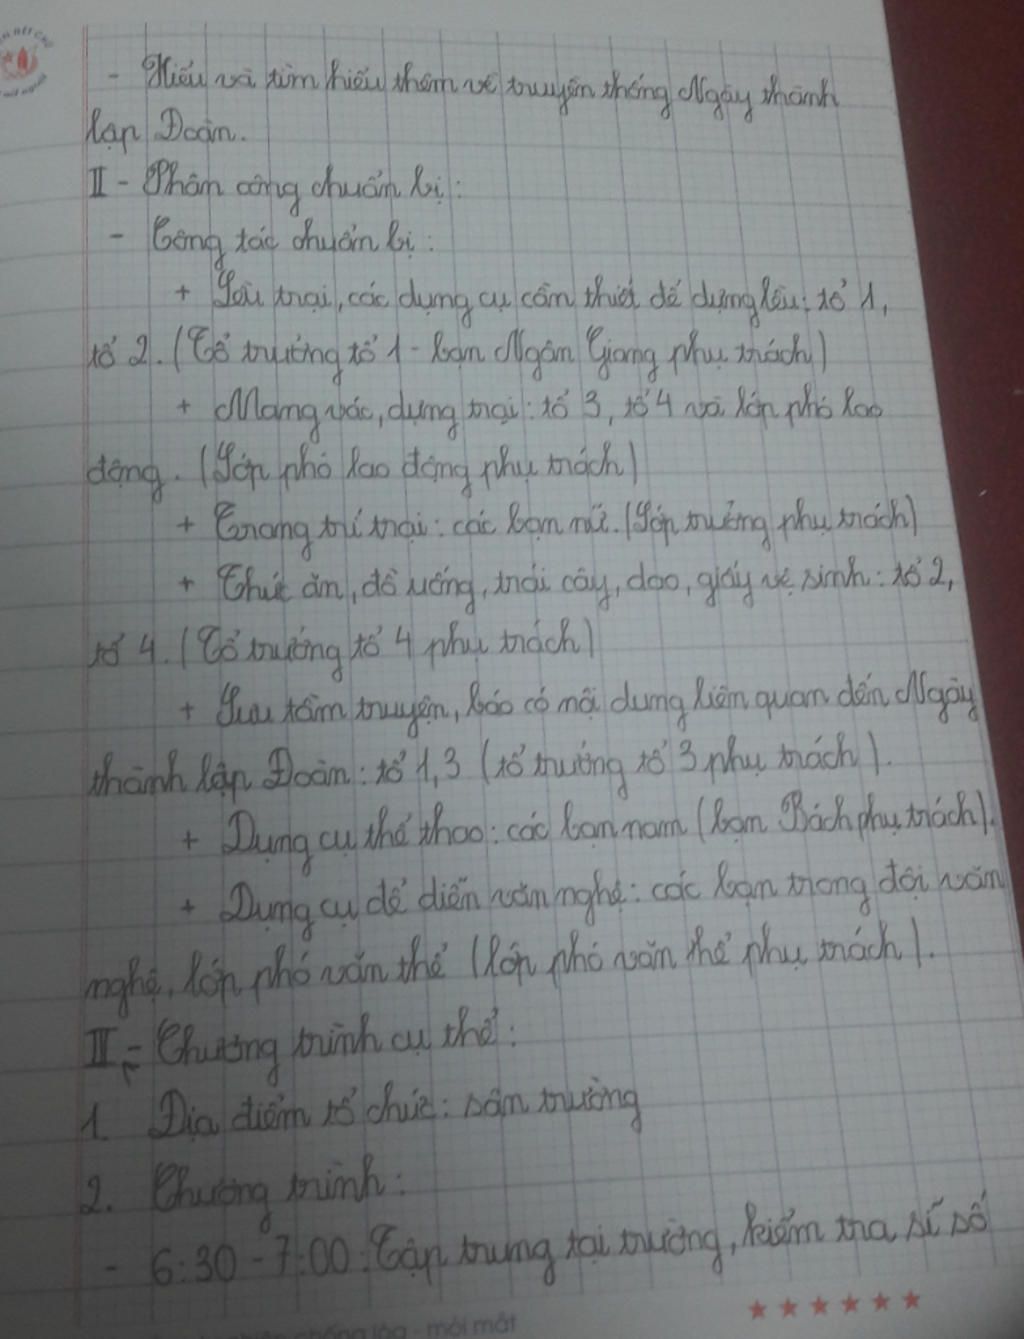 - Hiểu và tìm hiểu thêm về truyền thống Ngày thành
lập Đoàn.
II - Phân công chuẩn bị:
- Công tác chuẩn bị:
+ Lều trại, các dụng cụ cần thiết để dựng lều: tổ 1,
tổ 2. (Tổ trưởng tổ 1 - bạn Ngân Giang phụ trách)
+ Mang vác, dựng trại: tổ 3, tổ 4 và lớp phó lao
động. (Lớp phó lao động phụ trách)
+ Trang trí trại: các bạn nữ. (Lớp trưởng phụ trách)
+ Thức ăn, đồ uống, trái cây, dao, giấy vệ sinh: tổ 2,
tổ 4. (Tổ trưởng tổ 4 phụ trách)
+ Sưu tầm truyện, báo có nội dung liên quan đến Ngày
thành lập Đoàn: tổ 1,3 (tổ trưởng tổ 3 phụ trách).
+ Dụng cụ thể thao: các bạn nam (bạn Bách phụ trách).
+ Dụng cụ để diễn văn nghệ: các bạn trong đội văn
nghệ, lớp phó văn thể (lớp phó văn thể phụ trách).
III - Chương trình cụ thể:
1 Địa điểm tổ chức: sân trường
2. Chương trình:
- 6:30 - 7:00: Tập trung tại trường, kiểm tra sĩ số